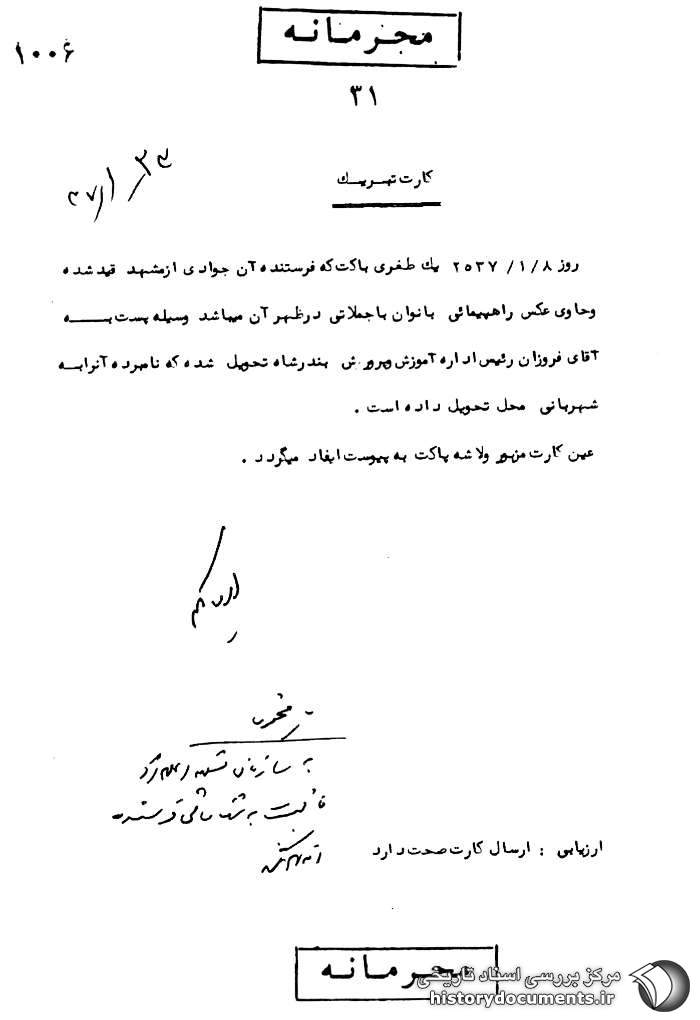 محرمانه
۱۰۰۶
۳۱
کارت تبریک
روز ۲۵۳۷ /۱/۸ یك طغری پاکت که فرستنده آن جوادی ازمشهد قیدشده
وحاوی عکس راهپیمائی بانوان باجملاتی درظهر آن میباشد وسیله پست به
آقای فروزان رئیس اداره آموزش وپرورش بندرشاه تحویل شده که نامبرده آنرابه
شهربانی محل تحویل داده است .
عین کارت مزبور ولاشه پاکت به پیوست ایفاد میگردد .
به سازمان
نسبت به شناسائی فرستنده
ارزیابی : ارسال کارت صحت دارد
محرمانه
مرکز بررسی اسناد تاریخی
historydocuments.ir